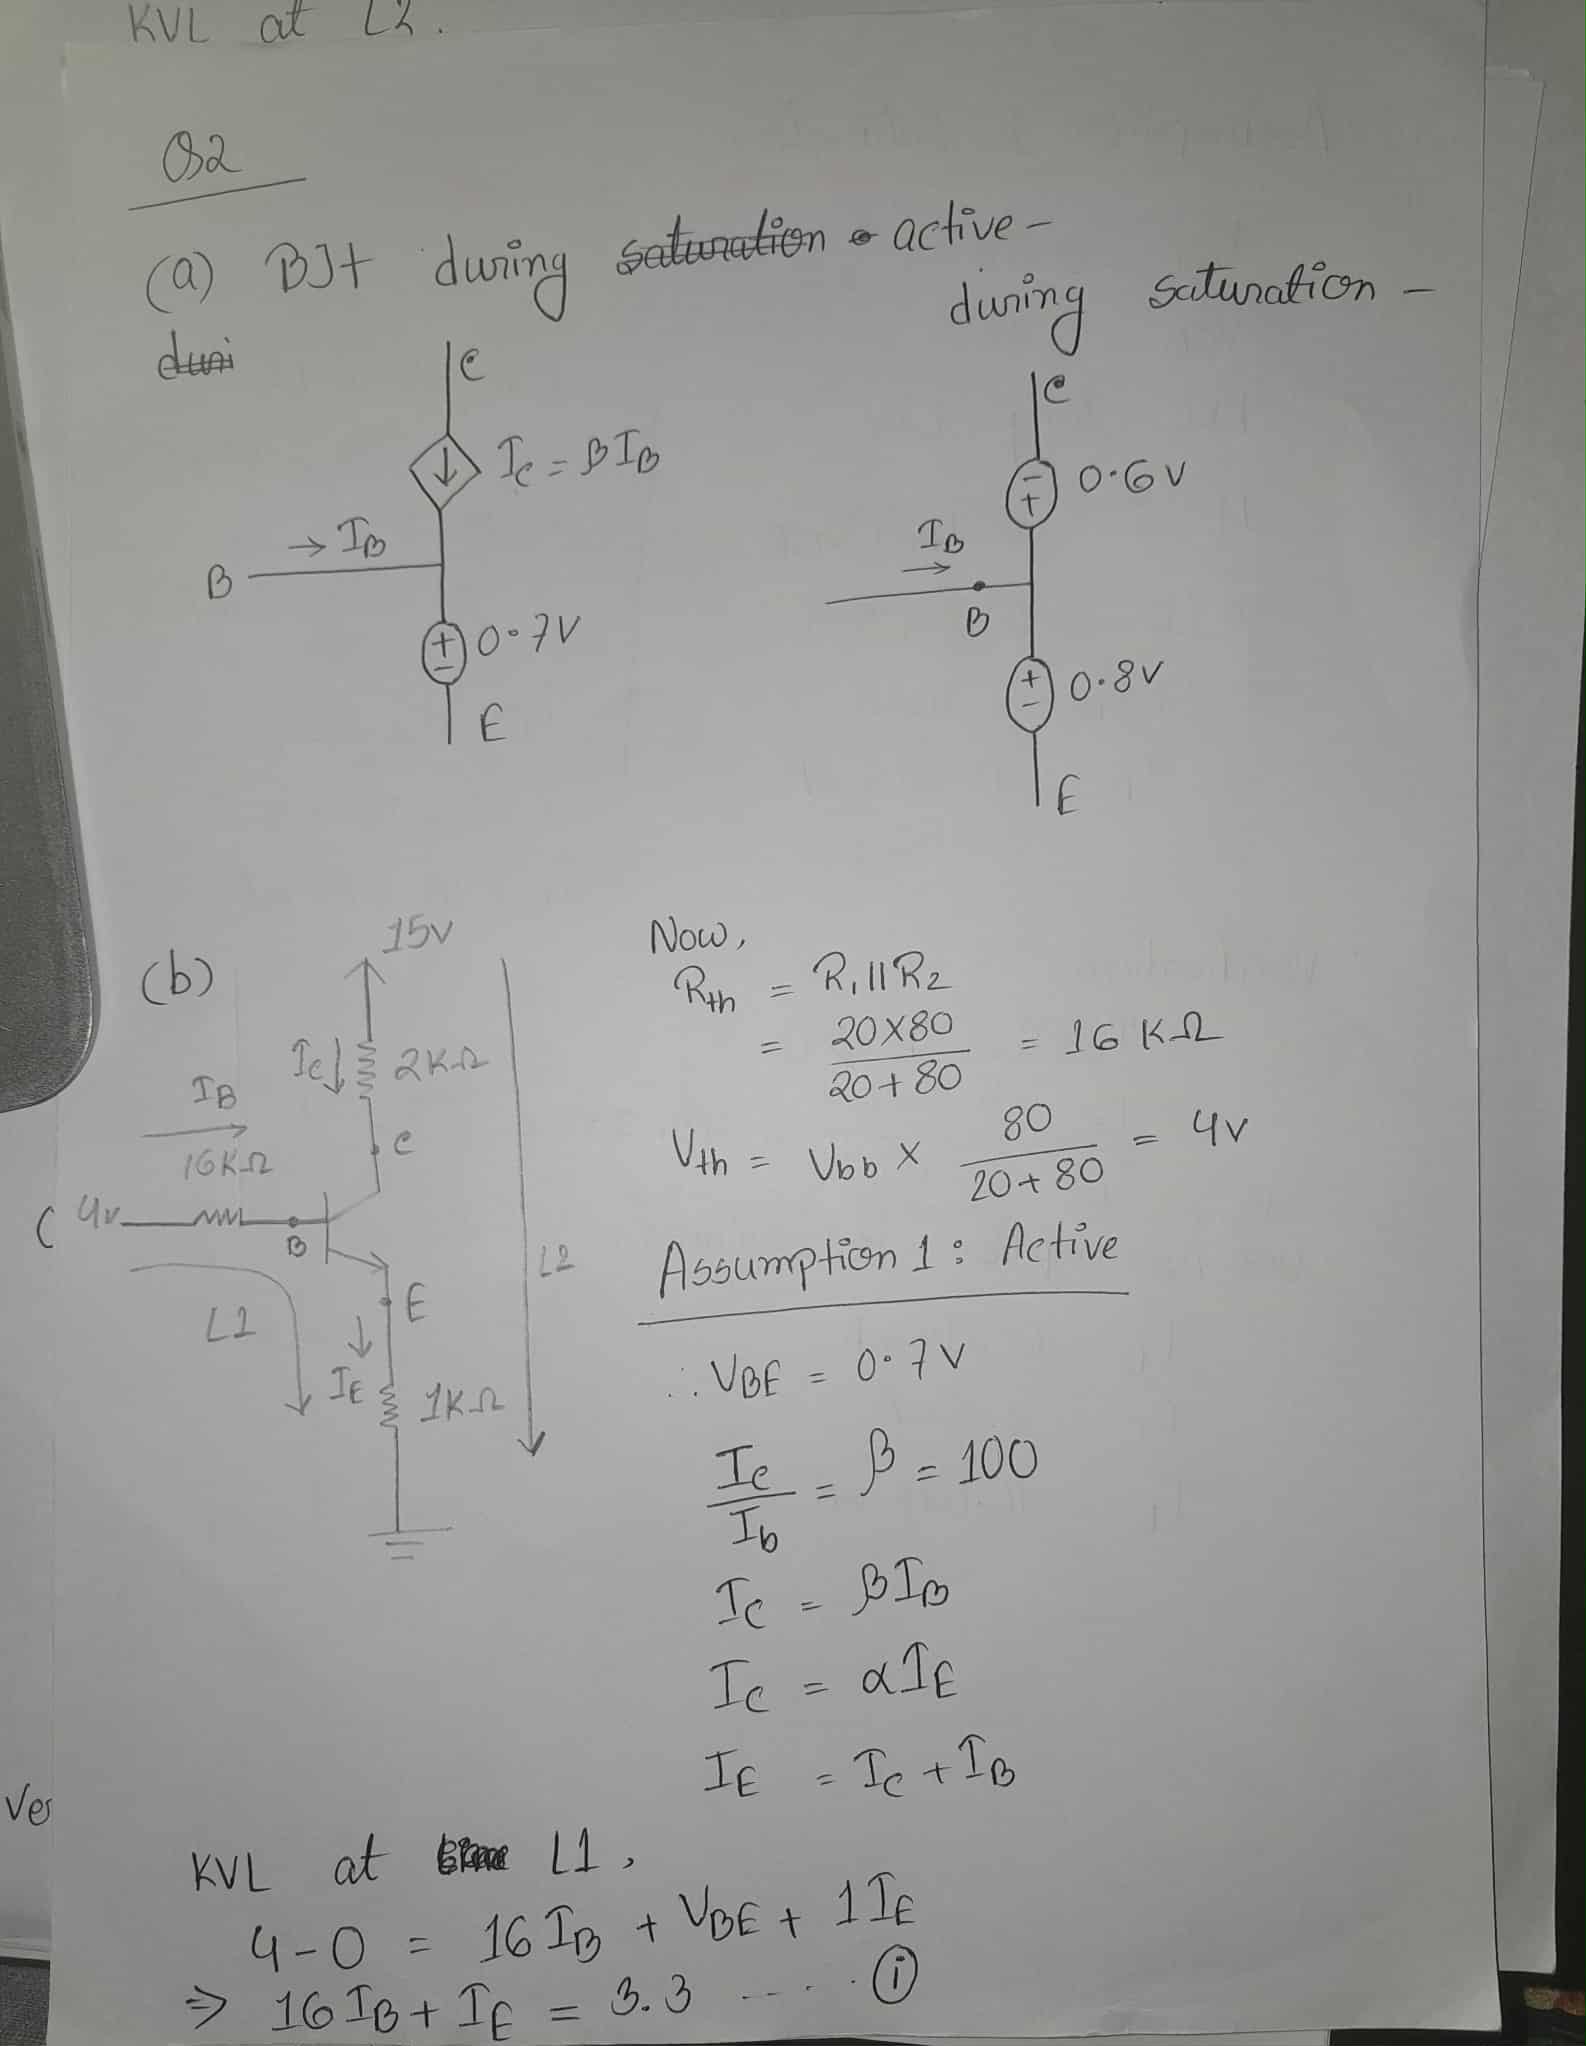 KVL at L2.
Q2
(a) BJt during saturation active -
during saturation -
duni
C
C
IC = βIB
0.6V
→ IB
IB
→
B
B
0.7V
0.8V
E
E
(b)
15V
IC↓
2KΩ
IB
16KΩ
C
4v
B
L2
L1
E
IE
1KΩ
Now,
Rth = R1 || R2
= 20X80 / 20+80 = 16 KΩ
Vth = Vbb X 80 / 20+80 = 4v
Assumption 1 : Active
∴ VBE = 0.7V
IC / Ib = β = 100
IC = βIB
IC = αIE
IE = IC + IB
Ver
KVL at L1,
4-0 = 16 IB + VBE + 1 IE
⇒ 16 IB + IE = 3.3 ..... (i)